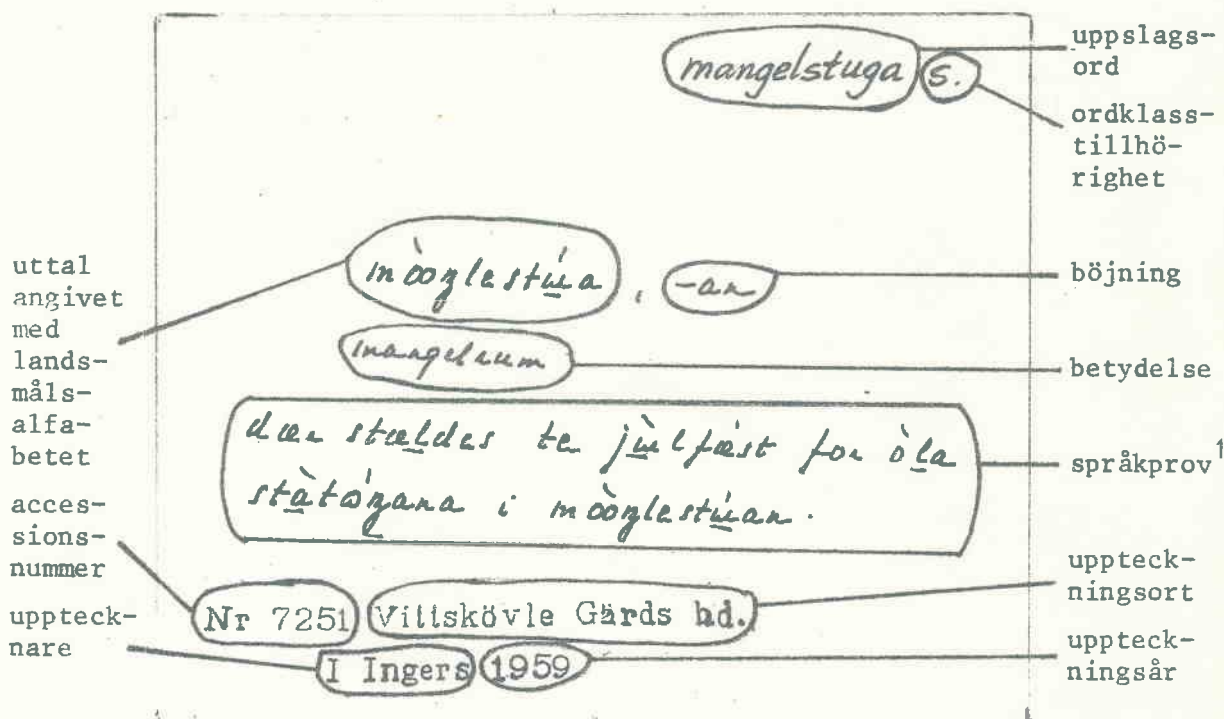 mangelstuga s.
uppslags-
ord
ordklass-
tillhö-
righet
uttal
angivet
med
lands-
måls-
alfa-
betet
, -an
böjning
mangelrum
betydelse
stældes te jùlfæst for òla
i
språkprov¹
acces-
sions-
nummer
Nr 7251 Vittskövle Gärds hd.
uppteck-
ningsort
uppteck-
nare
I Ingers 1959
uppteck-
ningsår